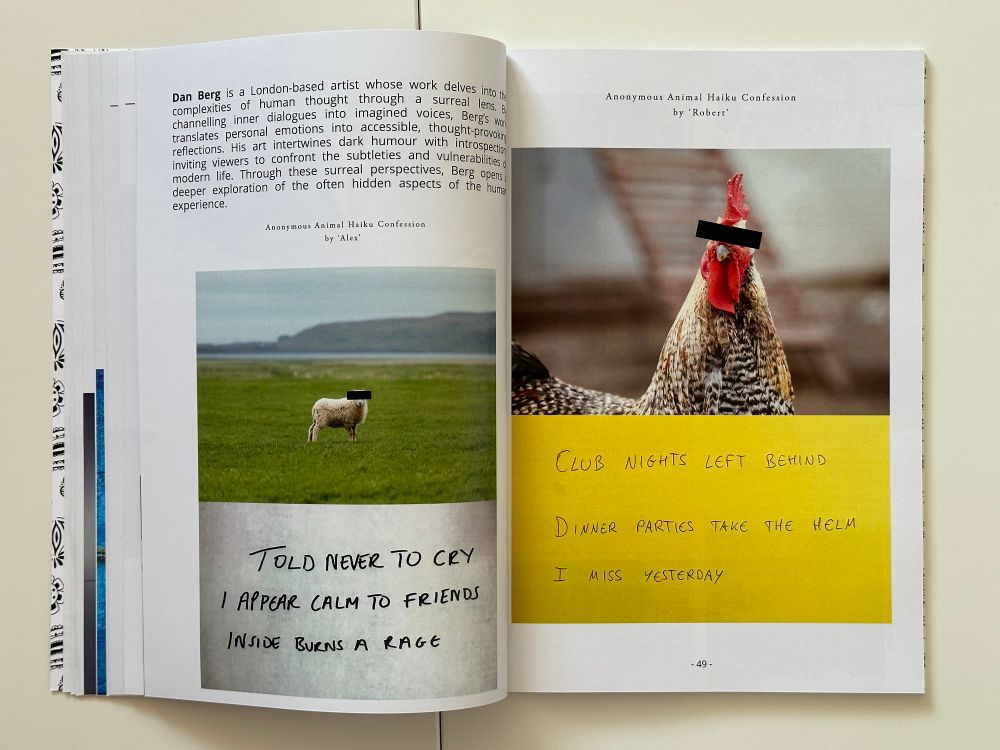 Dan Berg is a London-based artist whose work delves into the
complexities of human thought through a surreal lens. By
channelling inner dialogues into imagined voices, Berg's work
translates personal emotions into accessible, thought-provoking
reflections. His art intertwines dark humour with introspection,
inviting viewers to confront the subtleties and vulnerabilities of
modern life. Through these surreal perspectives, Berg opens a
deeper exploration of the often hidden aspects of the human
experience.
Anonymous Animal Haiku Confession
by 'Alex'
TOLD NEVER TO CRY
I APPEAR CALM TO FRIENDS
INSIDE BURNS A RAGE
Anonymous Animal Haiku Confession
by 'Robert'
CLUB NIGHTS LEFT BEHIND
DINNER PARTIES TAKE THE HELM
I MISS YESTERDAY
- 49 -